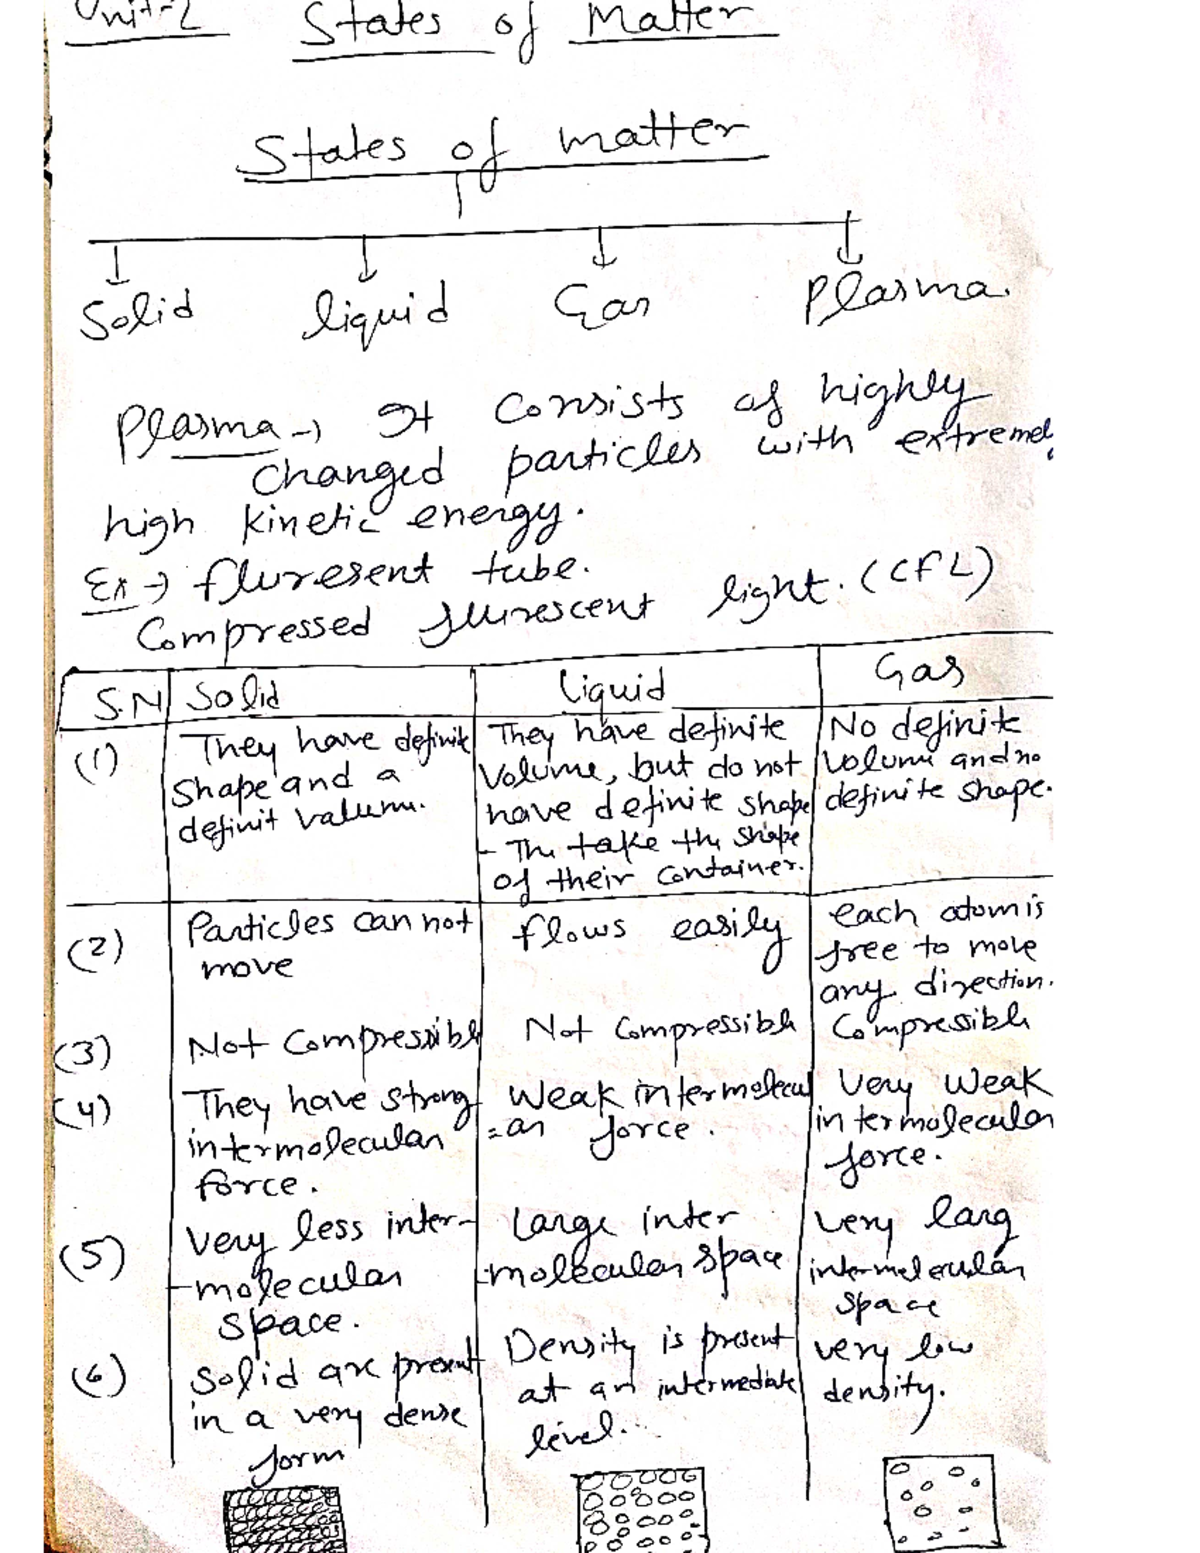 Unit-2 States of Matter
States of matter
Solid liquid Gas Plasma.
Plasma → It consists of highly
changed particles with extremel
high kinetic energy.
Ex → fluresent tube.
Compressed flurescent light. (CFL)
S.N Solid Liquid Gas
(1) They have definite
shape and a
definit valum.
They have definite
volume, but do not
have definite shape
- The take the shape
of their container.
No definite
volume and no
definite shape.
(2) Particles can not
move
flows easily
each atom is
free to move
any direction.
(3) Not Compressible
Not Compressible
Compressible
(4) They have strong
intermolecular
force.
Weak intermolecul
=ar force.
Very Weak
intermolecular
force.
(5) Very less inter-
-molecular
space.
Large inter
-molecular space
very larg
intermolecular
space
(6) Solid are present
in a very dense
form
Density is present
at an intermediate
level..
very low
density.